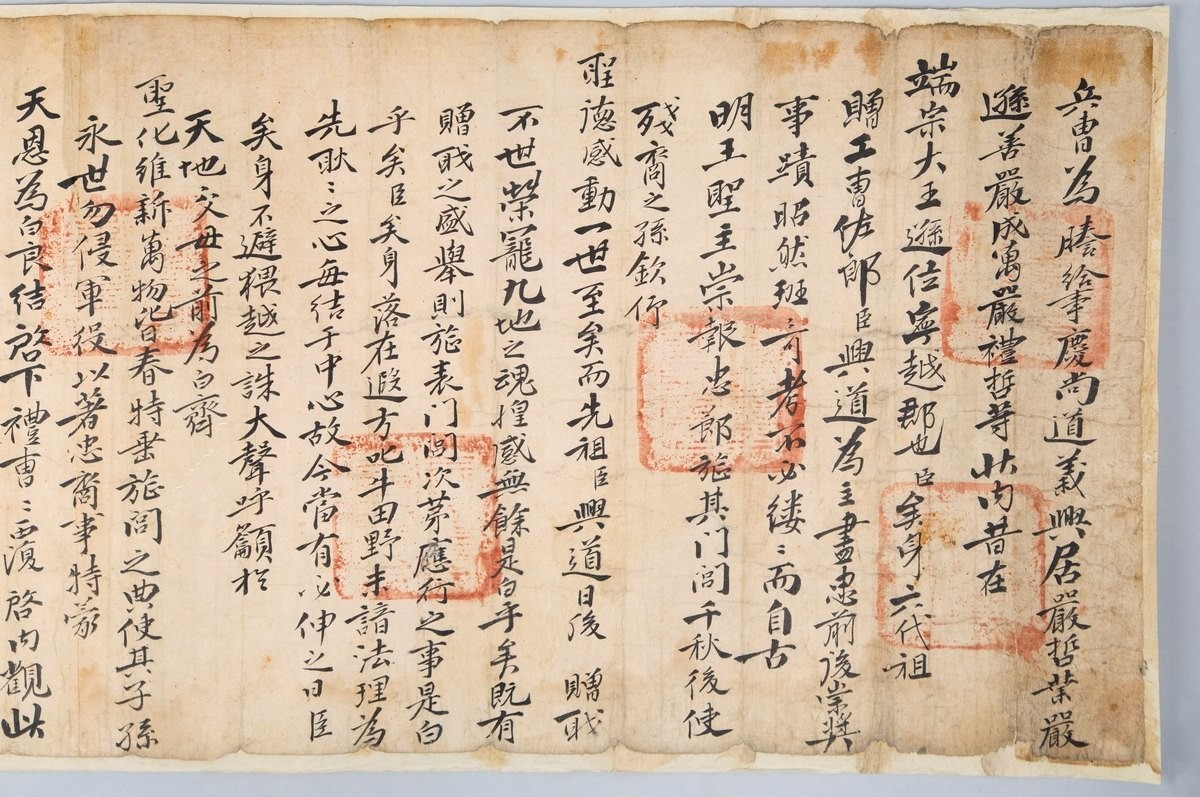 兵曹為謄給事慶尚道義興居嚴哲業嚴
遜善嚴成萬嚴禮哲等狀內昔在
端宗大王遜位寧越郡也臣矣身六代祖
贈工曹佐郎臣興道為主盡忠前後崇奬
事蹟昭然班班可考不必縷〻而自古
明王聖主崇報忠節旌其門閭千秋後使
殘裔之孫欽仰
聖德感動一世至矣而先祖臣興道日後 贈職
不世榮寵九地之魂惶感無餘是白乎矣既有
贈職之盛舉則旌表门閭次第應行之事是白
乎矣臣矣身落在遐方叱牛田野未諳法理為
先耿〻之心每結于中心故今當有必伸之日臣
矣身不避猥越之誅大聲呼籲於
天地父母之前為白齊
聖化維新萬物皆春特垂旌閭之典使其子孫
永世勿侵軍役以著忠裔事特蒙
天恩為白良結啓下禮曹〻覆啓內觀此